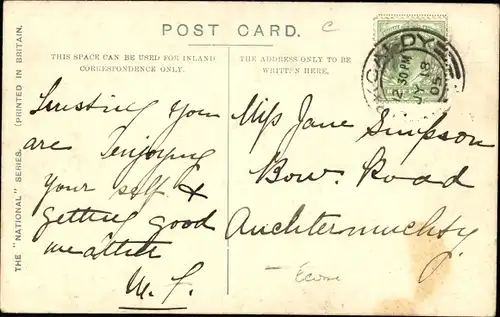 POST CARD.
C
THIS SPACE CAN BE USED FOR INLAND
CORRESPONDENCE ONLY.
THE ADDRESS ONLY TO BE
WRITTEN HERE.
THE "NATIONAL" SERIES. (PRINTED IN BRITAIN.
Trusting you
are enjoying
your self &
getting good
weather
M. F.
Miss Jane Simpson
Bow. Road
Auchtermuchty
12 30PM
JY 18
05